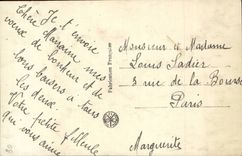 Chère je t'envoie
Marraine mes
voeux de bonheur et de
bons baisers à tous
les deux.
Votre petite filleule
qui vous aime
Marguerite
Fabrication Française
Monsieur et Madame
Louis Sadier
3 rue de la Bourse
Paris